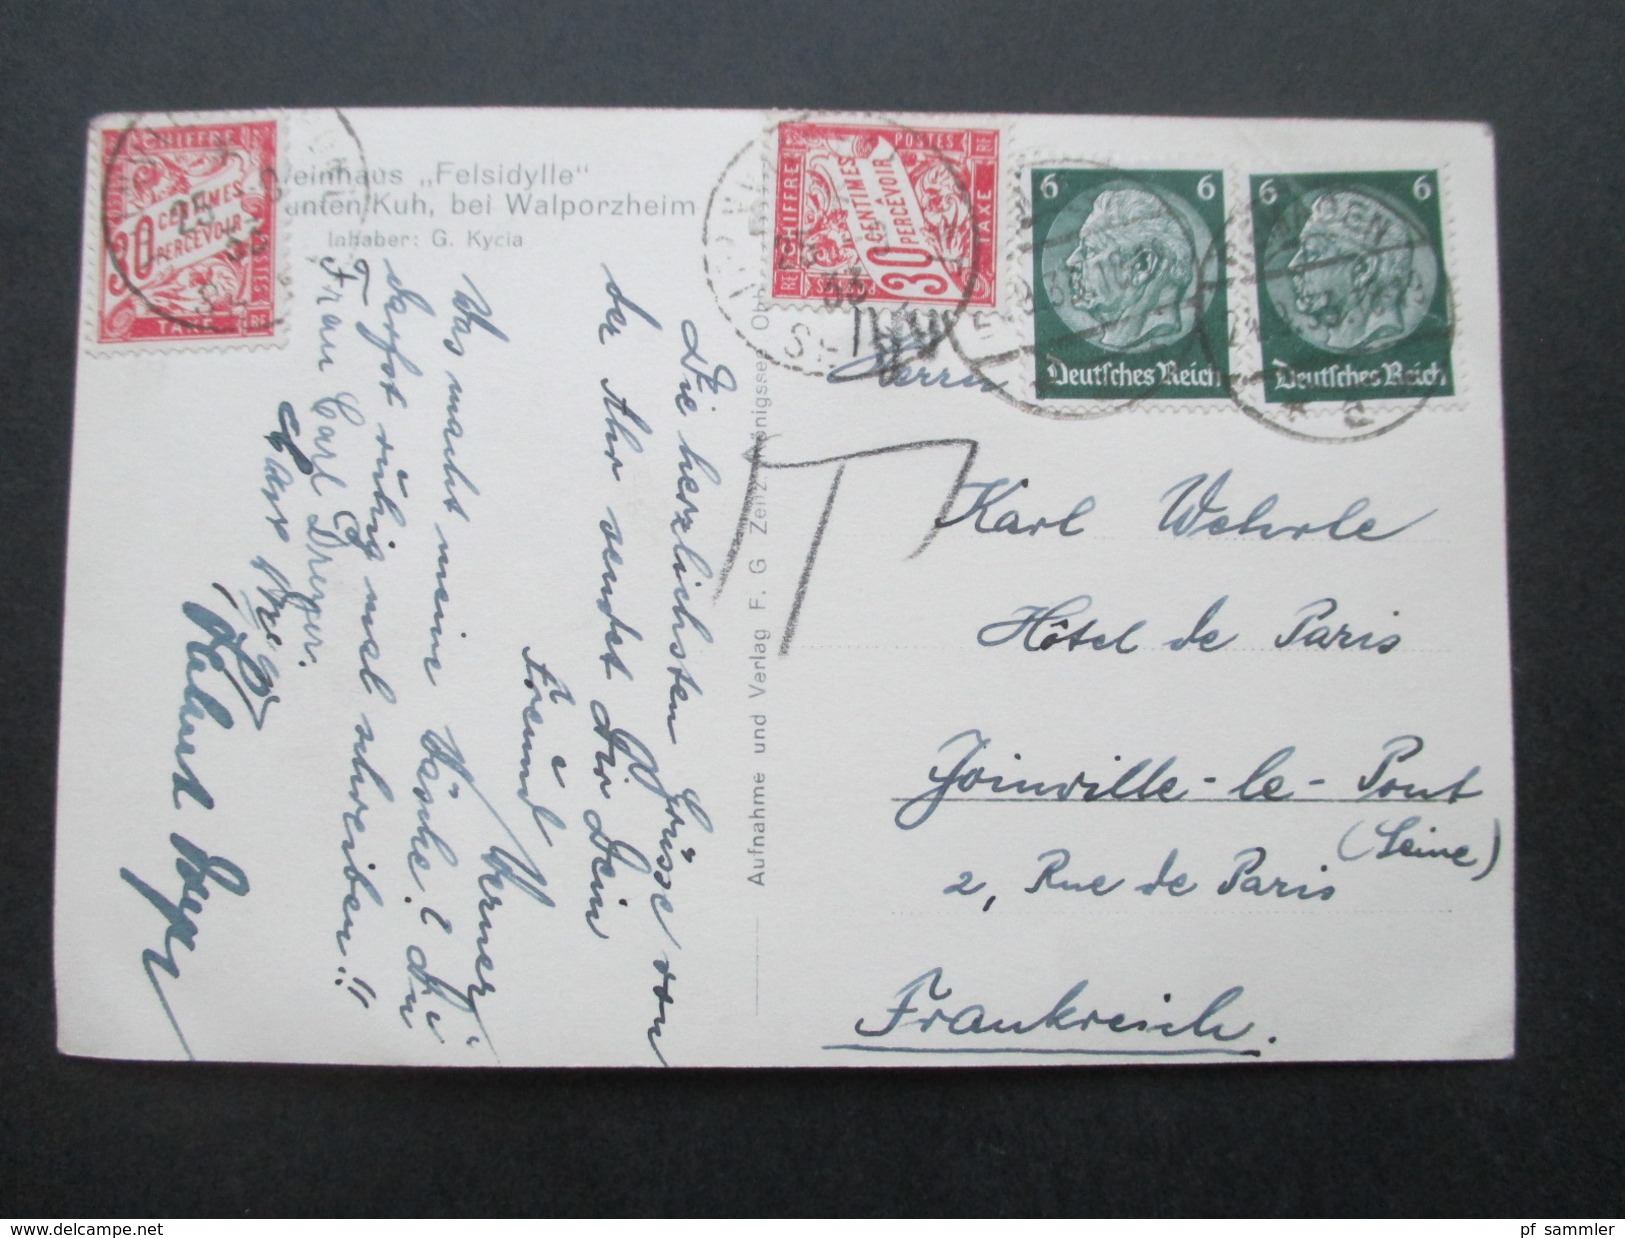 Weinhaus „Felsidylle“
bunten Kuh, bei Walporzheim
Inhaber: G. Kycia
Die herzlichsten Grüsse von
der Ahr sendet Dir Dein
Freund
Werner
Was macht meine Wäsche? Du
darfst ruhig mal schreiben!!
Frau Carl Dreyer.
Aufnahme und Verlag F. G Zenz, Königssee Obb
CHIFFRE
30 CENTIMES
PERCEVOIR
TAXE
RF
POSTES
CHIFFRE
30 CENTIMES
À PERCEVOIR
TAXE
RF
25
33
6 6
Deutsches Reich
6 6
Deutsches Reich
T
Herrn
Karl Wehrle
Hôtel de Paris
Joinville-le-Pont
(Seine)
2, Rue de Paris
Frankreich.
www.delcampe.net
pf_sammler